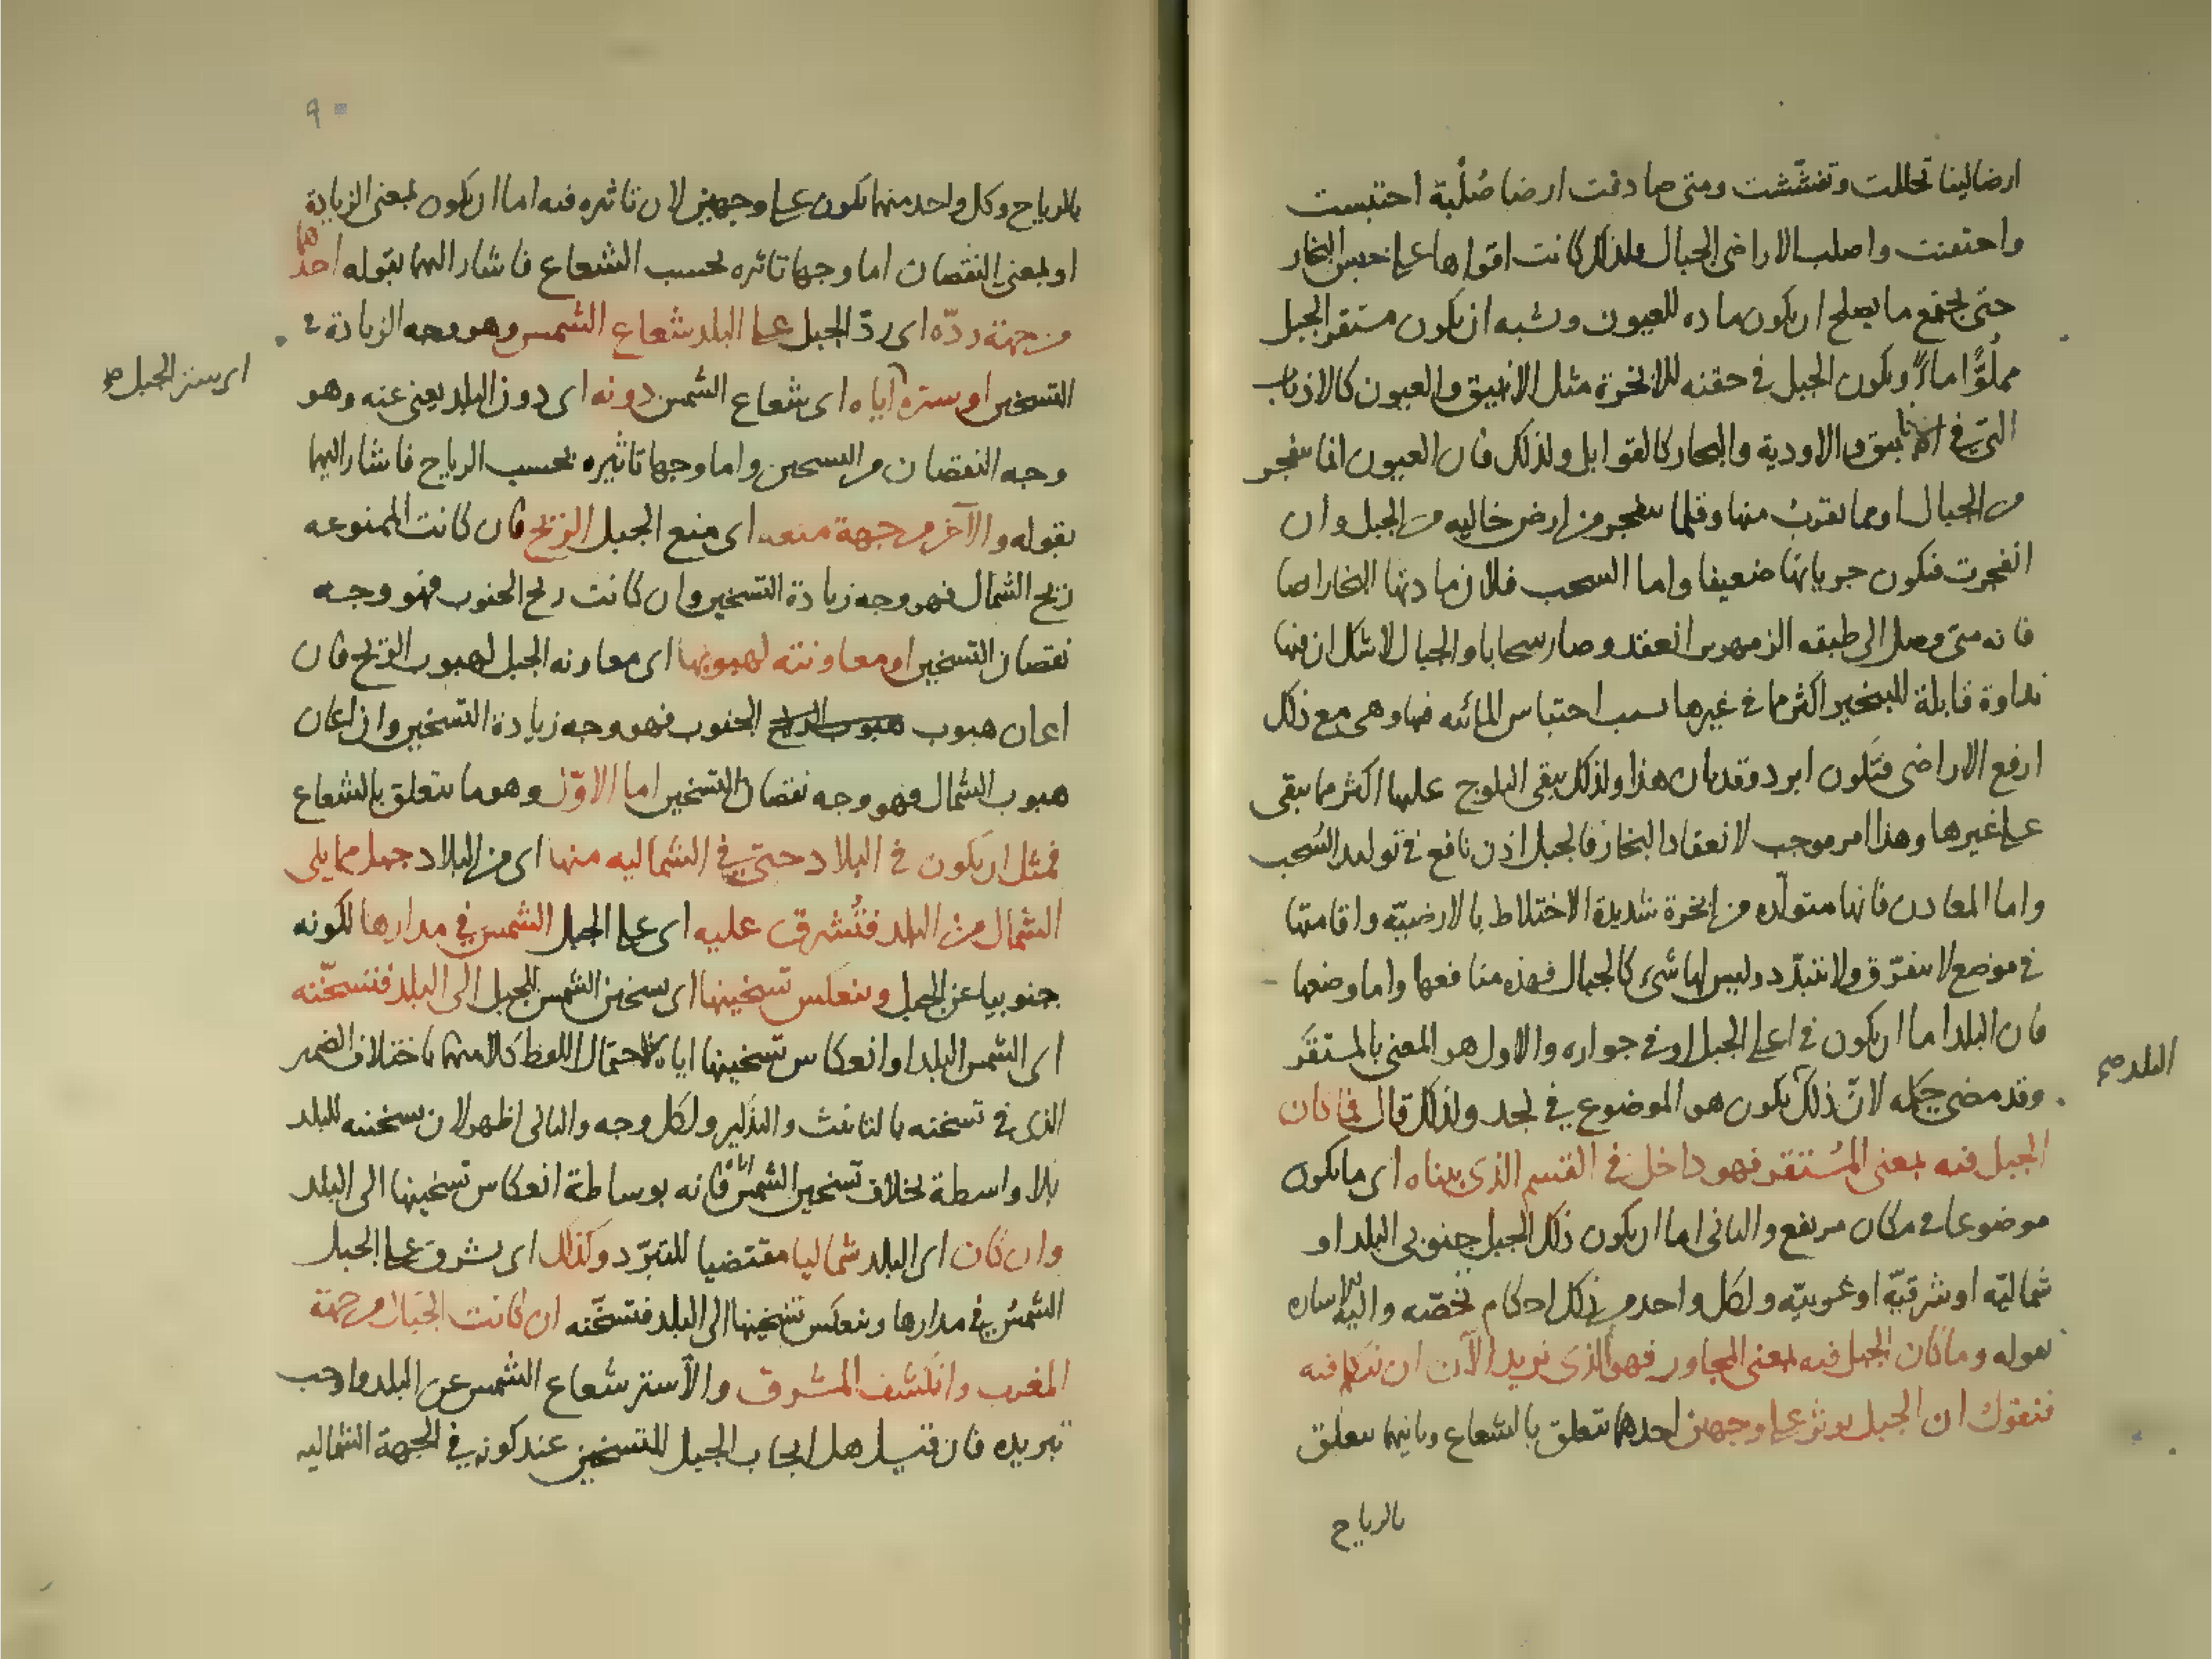 ارضا لينا تحللت وتفششت ومتى صادفت ارضا صُلْبة احتبست
واحتقنت واصلب الاراضى الجبال فلذلك كانت اقواها على حبس البخار
حتى يجتمع ما يصلح ان يكون ماده للعيون ويشبه ان يكون مستقر الجبل
مملُوًّا ماءً ويكون الجبل فى حقنه للابخرة مثل الانبيق والعيون كالاذناب
التى فى الانابيق والاودية والبحار كالقوابل ولذلك فان العيون انما تنفجر
من الجبال او مما يقرب منها وقلما تنفجر من ارض خاليه من الجبل وان
انفجرت فتكون جرياناتها ضعيفا واما السحب فلان مادتها البخار ايضا
فانه متى وصل الى طبقه الزمهرير انعقد وصار سحابا والجبال لا شك ان فيها
نداوة قابلة للتبخير اكثر مما فى غيرها بسبب احتباس المائيه فيها وهى مع ذلك
ارفع الاراضى فتكون ابرد وقد بان هذا ولذلك يبقى الثلوج عليها اكثر مما يبقى
على غيرها وهذا امر موجب لانعقاد البخار فالجبل اذن نافع فى توليد السُحب
واما المعادن فانها متولّده من ابخرة شديدة الاختلاط بالارضيّة واقامتها
فى موضع لا يتفرّق ولا يتبدّد وليس لها شىء كالجبال فهذه منافعها واما وضعها
فان البلد اما ان يكون فى اعلى الجبل او فى جواره والاول هو المعنى بالمستقَر
وقد مضى حكمه لانّ ذلك يكون هو الموضوع فى نجد ولذلك قال فما كان
البلد صح
الجبل فيه بمعنى المُستقر فهو داخل فى القسم الذى بيناه اى ما يكون
موضوعا فى مكان مرتفع والثانى اما ان يكون ذلك الجبل جنوبى البلد او
شماليّه او شرقيّه او غربيّه ولكل واحد من ذلك احكام تخصّه واليه اشار
بقوله وما كان الجبل فيه بمعنى المجاور فهو الذى نريد الآن ان نتكلم فيه
فنقول ان الجبل يوثر على وجهين احدهما يتعلق بالشعاع وثانيهما يتعلق
بالرياح
٩٠
بالرياح وكل واحد منهما يكون على وجهين لان تاثيره فيه اما ان يكون لمعنى الزيادة
او لمعنى النقصان اما وجها تاثيره بحسب الشعاع فاشار اليهما بقوله احدهما
من جهة ردّه اى ردّ الجبل على البلد شعاع الشمس وهو وجه الزيادة فى
التسخين او ستره اياه اى شعاع الشمس دونه اى دون البلد يعنى عنه وهو
اى ستر الجبل صح
وجه النقصان من التسخين واما وجها تاثيره بحسب الرياح فاشار اليهما
بقوله والآخر من جهة منعه اى منع الجبل الريح فان كانت الممنوعه
ريح الشمال فهو وجه زيادة التسخين وان كانت ريح الجنوب فهو وجه
نقصان التسخين او معاونته لهبوبها اى معاونه الجبل لهبوب الريح فان
اعان هبوب هبوب الريح الجنوب فهو وجه زيادة التسخين وان اعان
هبوب الشمال فهو وجه نقصان التسخين اما الاوّل وهو ما يتعلق بالشعاع
فمثل ان يكون فى البلاد حتى فى الشماليه منها اى من البلاد جبل مما يلى
الشمال من البلد فتُشرق عليه اى على الجبل الشمس فى مدارها لكونه
جنوبيا عن الجبل وينعكس تسخينها اى تسخين الشمس الجبل الى البلد فتسخّنه
اى الشمس البلد او انعكاس تسخينها اياه لاحتمال اللفظ كلا منهما باختلاف الضمير
الذى فى تسخنه بالتانيث والتذكير ولكل وجه والثانى اظهر لان تسخينه للبلد
بلا واسطة بخلاف تسخين الشمس اياه فانه بوساطة انعكاس تسخينها الى البلد
وان كان اى البلد شماليا مقتضيا للتبرّد وكذلك اى يشرق على الجبل
الشمسُ فى مدارها وينعكس تسخينها الى البلد فتسخّنه ان كانت الجبال من جهة
المغرب وانكشف المشرق والا ستر شعاع الشمس عن البلد واوجب
تبريده فان قيل هل ايجاب الجبل للتسخين عند كونه فى الجهة الشماليه